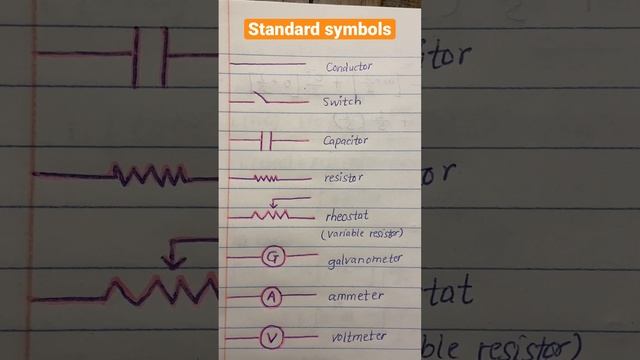 Standard symbols
Conductor
Switch
Capacitor
resistor
rheostat
(variable resistor)
G galvanometer
A ammeter
V voltmeter
itor
or
tat
ble resistor)